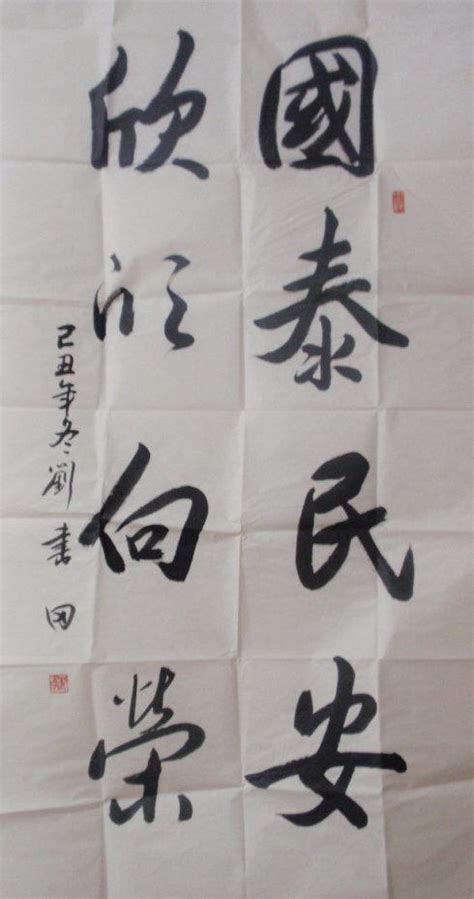 國泰民安
欣欣向榮
己丑年冬劉書田